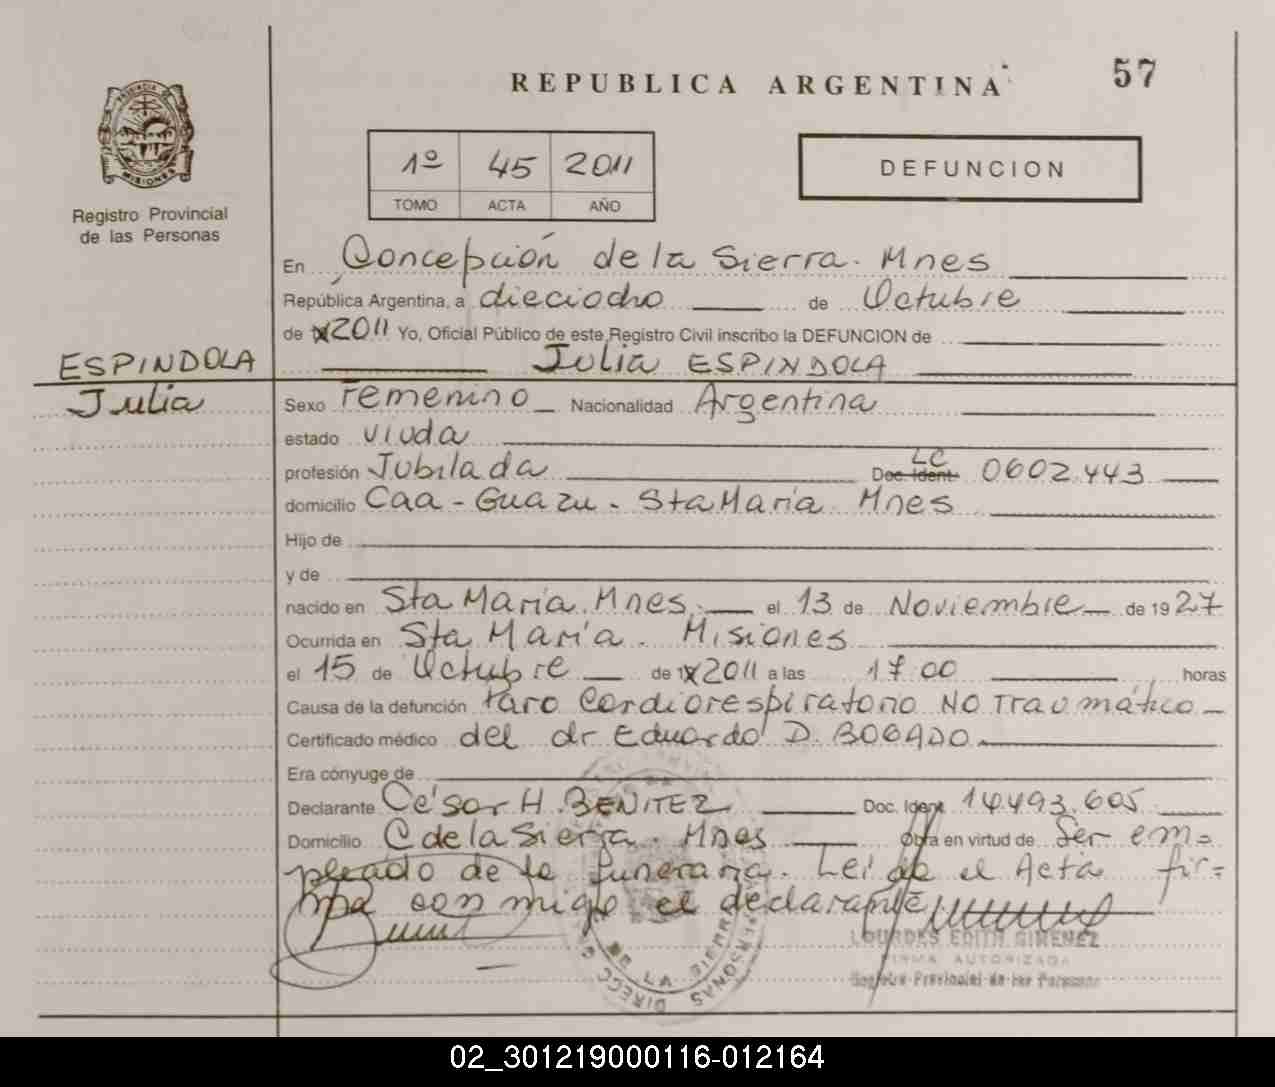 57
REPUBLICA ARGENTINA
PROVINCIA DE
MISIONES
Registro Provincial
de las Personas
1º 45 2011
TOMO ACTA AÑO
DEFUNCION
En Concepción de la Sierra. Mnes
República Argentina, a dieciocho de Octubre
de 2011 Yo, Oficial Público de este Registro Civil inscribo la DEFUNCION de
ESPINDOLA Julia ESPINDOLA
Julia Sexo Femenino Nacionalidad Argentina
estado viuda
profesión Jubilada Doc. Ident. LC 0602.443
domicilio Caa-Guazu. Sta Maria Mnes
Hijo de
y de
nacido en Sta María. Mnes. el 13 de Noviembre de 1927
Ocurrida en Sta María. Misiones
el 15 de Octubre de 2011 a las 17.00 horas
Causa de la defunción Paro Cardiorespiratorio NO Traumático
Certificado médico del dr Eduardo D. BOGADO
Era cónyuge de
Declarante César H. BENITEZ Doc. Ident. 14.493.605
Domicilio C de la Sierra. Mnes Obra en virtud de Ser em=
pleado de la funeraria. Leída el Acta fir=
ma conmigo el declarante
LOURDES EDITH GIMENEZ
FIRMA AUTORIZADA
Registro Provincial de las Personas
02_301219000116-012164